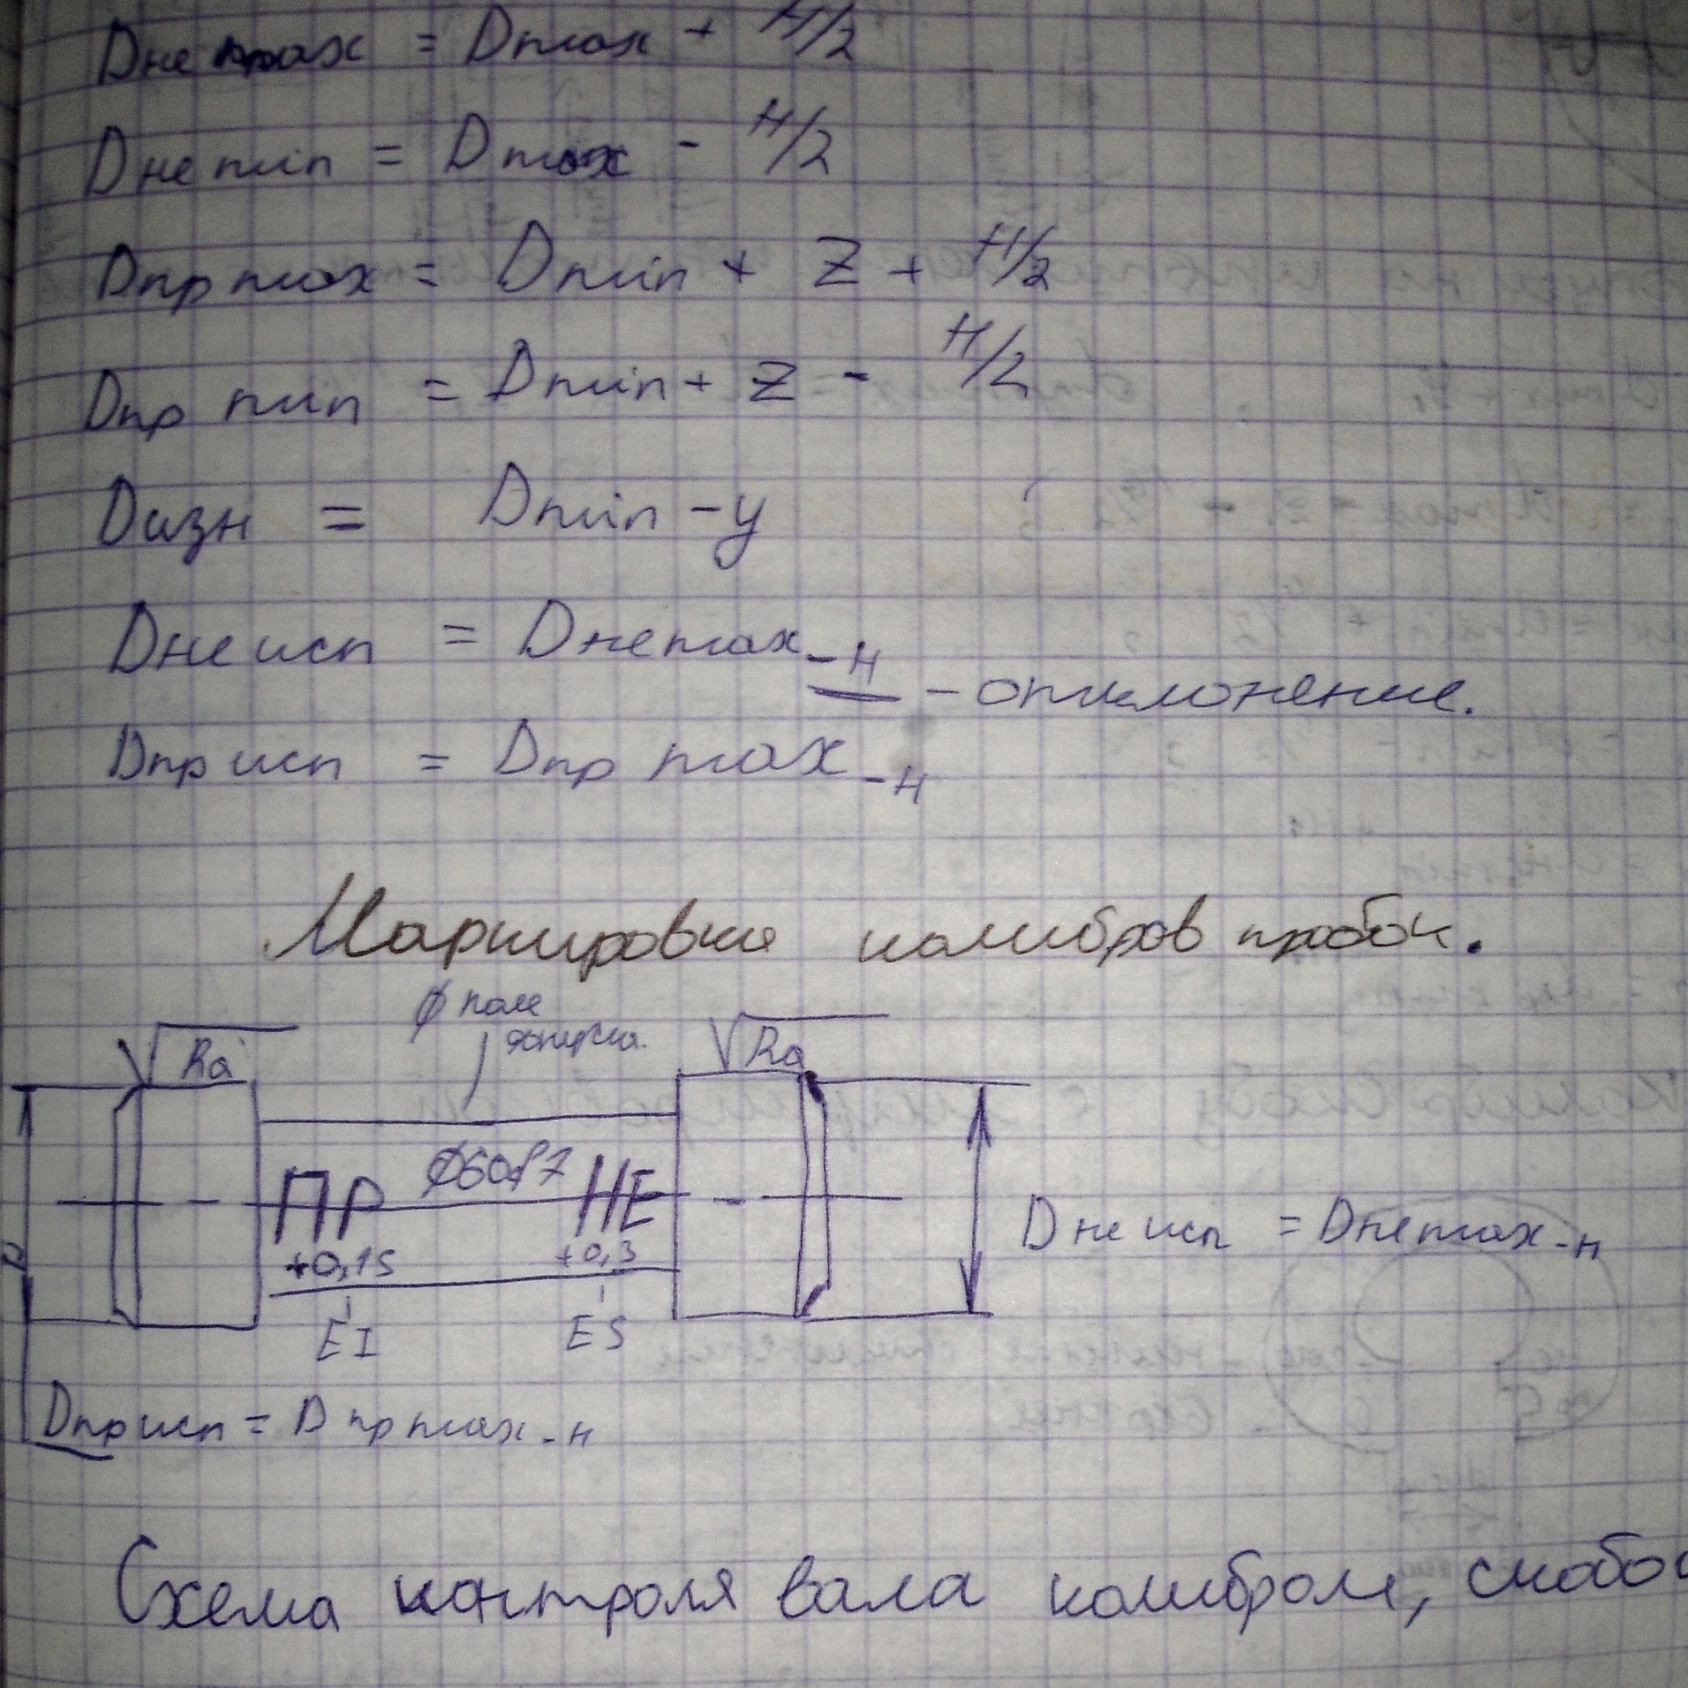 Dне max = Dmax + H/2
Dне min = Dmax - H/2
Dпр max = Dmin + Z + H/2
Dпр min = Dmin + Z - H/2
Dизн = Dmin - y
Dне исп = Dне max -H
- отклонение.
Dпр исп = Dпр max -H
Маркировка калибров пробок.
Ø поле
допуска.
√Ra
√Ra
ПР Ø60F7 НЕ
+0,15 +0,3
EI ES
Dне исп = Dне max -H
Dпр исп = Dпр max -H
Схема контроля вала калибром, скобой